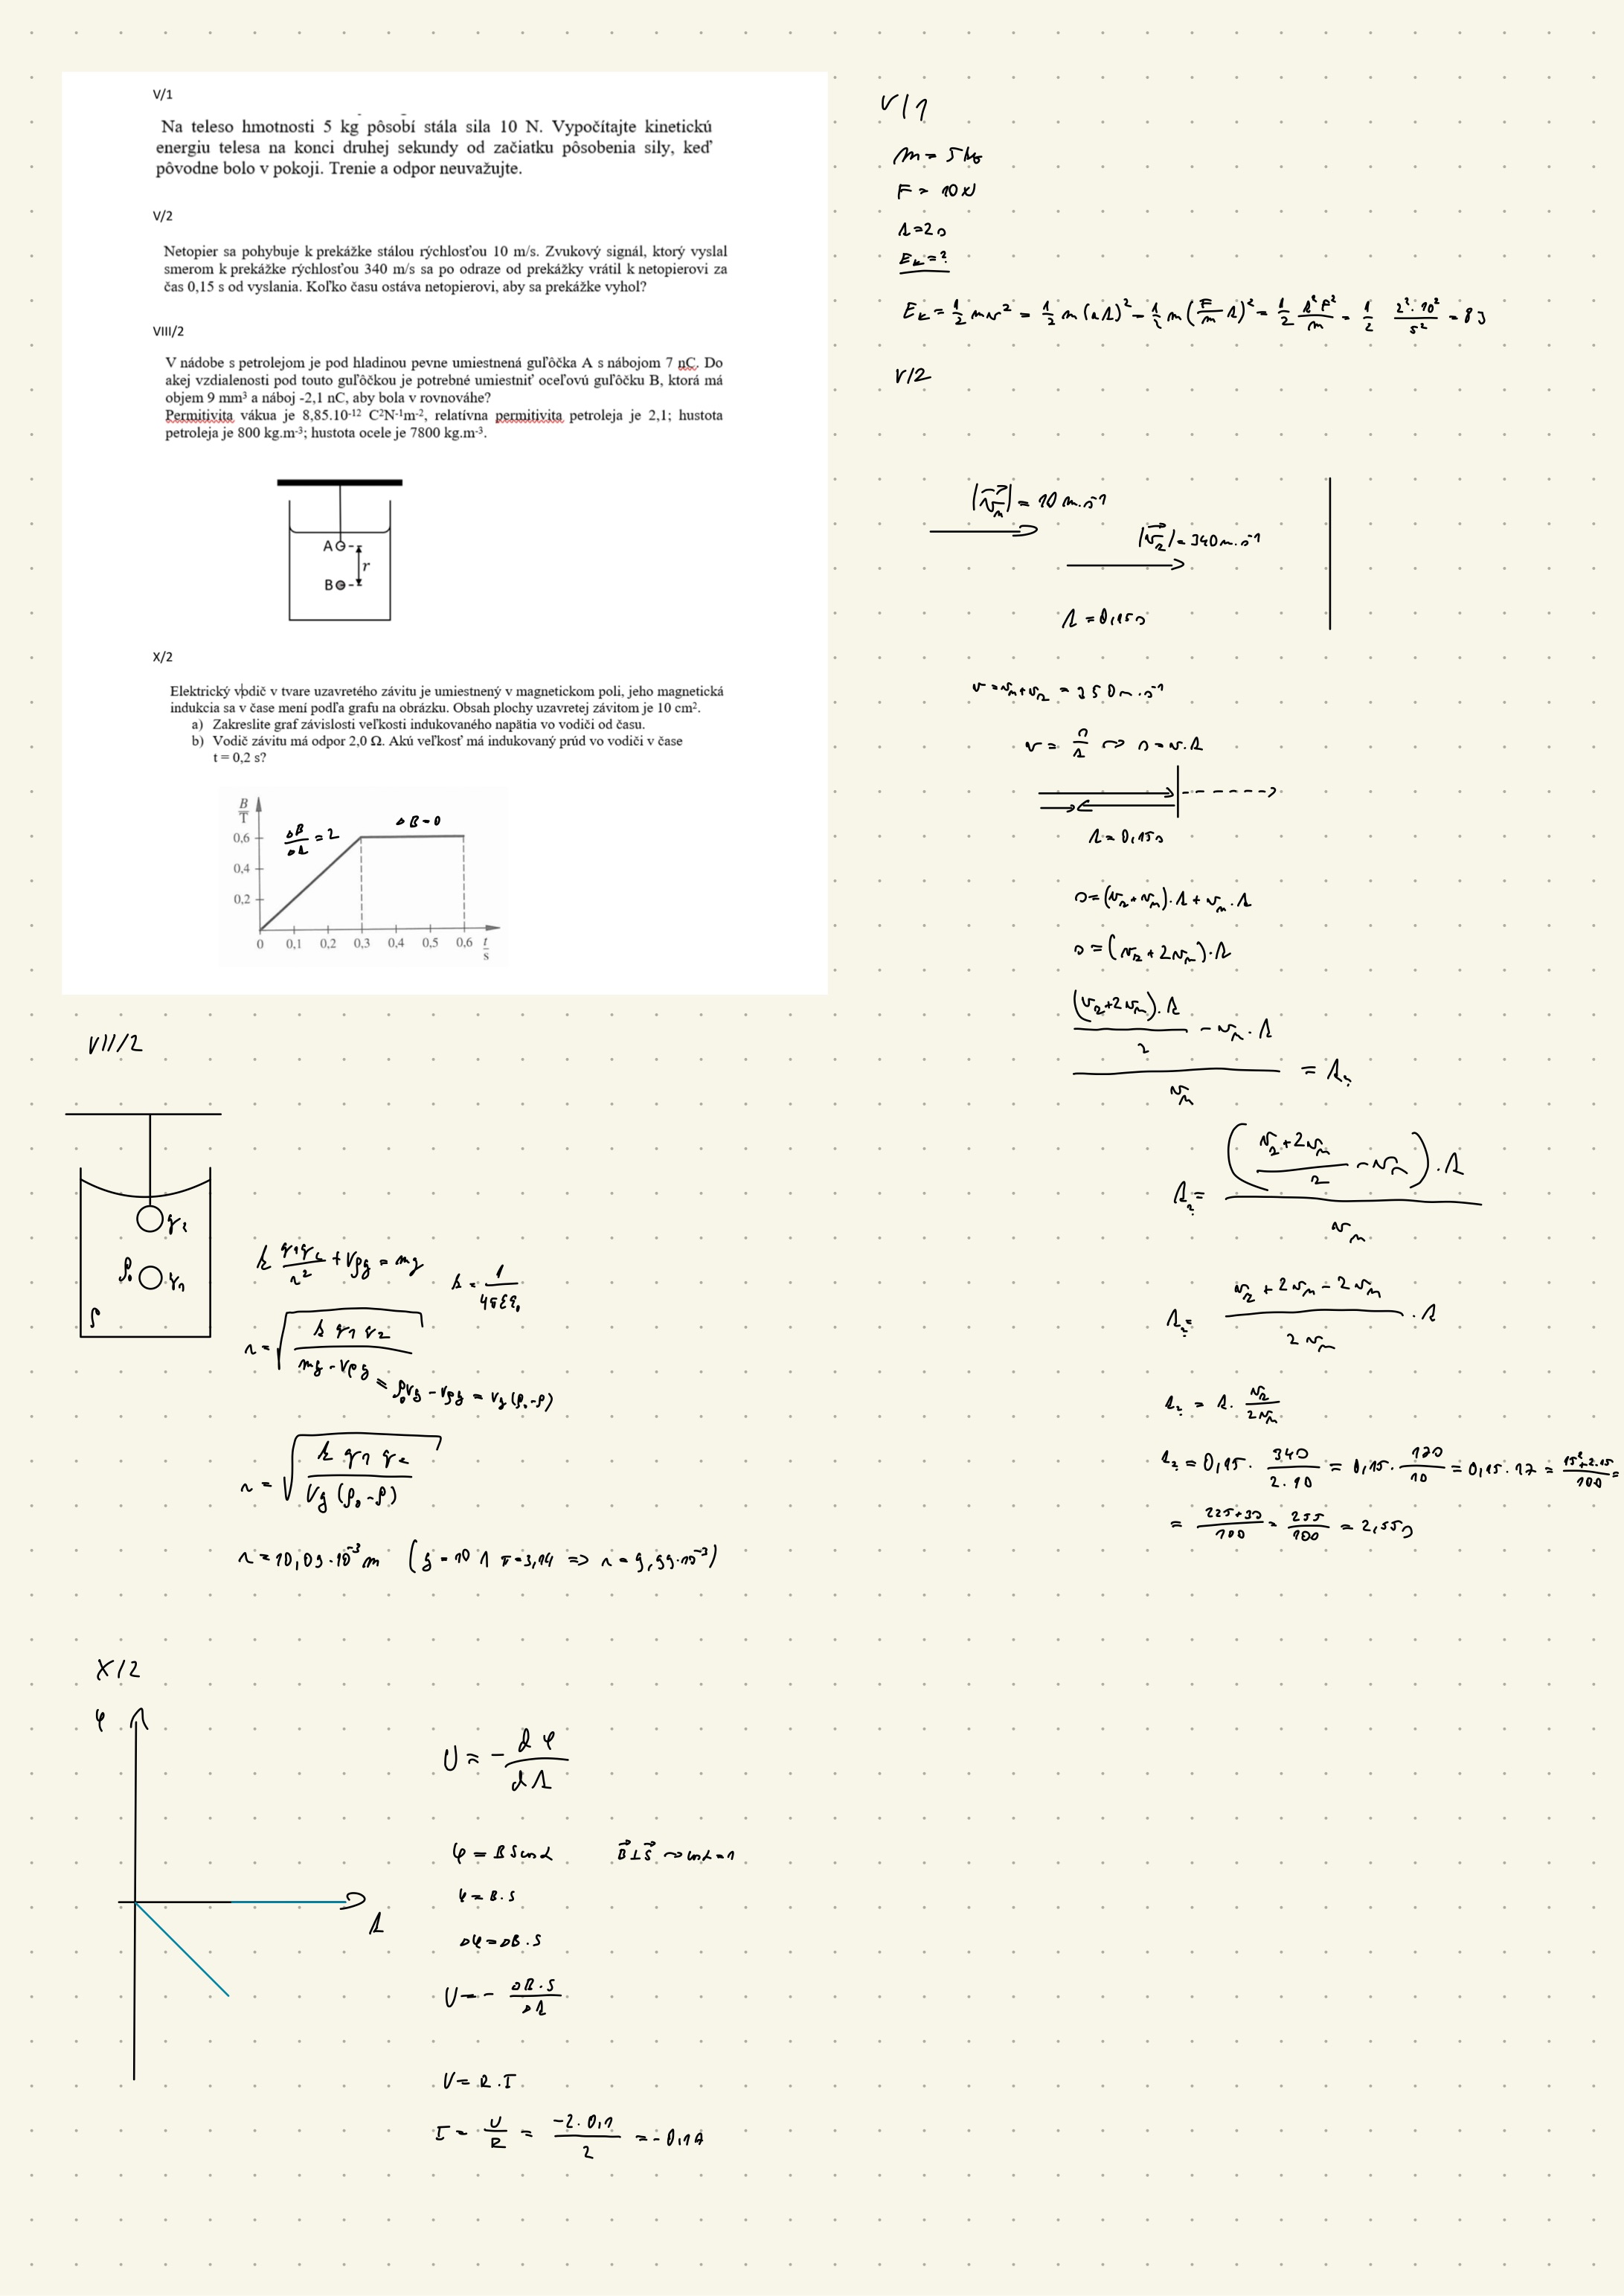 V/1
Na teleso hmotnosti 5 kg pôsobí stála sila 10 N. Vypočítajte kinetickú
energiu telesa na konci druhej sekundy od začiatku pôsobenia sily, keď
pôvodne bolo v pokoji. Trenie a odpor neuvažujte.
V/2
Netopier sa pohybuje k prekážke stálou rýchlosťou 10 m/s. Zvukový signál, ktorý vyslal
smerom k prekážke rýchlosťou 340 m/s sa po odraze od prekážky vrátil k netopierovi za
čas 0,15 s od vyslania. Koľko času ostáva netopierovi, aby sa prekážke vyhol?
VIII/2
V nádobe s petrolejom je pod hladinou pevne umiestnená guľôčka A s nábojom 7 nC. Do
akej vzdialenosti pod touto guľôčkou je potrebné umiestniť oceľovú guľôčku B, ktorá má
objem 9 mm³ a náboj -2,1 nC, aby bola v rovnováhe?
Permitivita vákua je 8,85.10⁻¹² C²N⁻¹m⁻², relatívna permitivita petroleja je 2,1; hustota
petroleja je 800 kg.m⁻³; hustota ocele je 7800 kg.m⁻³.
A
r
B
X/2
Elektrický vodič v tvare uzavretého závitu je umiestnený v magnetickom poli, jeho magnetická
indukcia sa v čase mení podľa grafu na obrázku. Obsah plochy uzavretej závitom je 10 cm².
a) Zakreslite graf závislosti veľkosti indukovaného napätia vo vodiči od času.
b) Vodič závitu má odpor 2,0 Ω. Akú veľkosť má indukovaný prúd vo vodiči v čase
t = 0,2 s?
B/T
0,6
0,4
0,2
ΔB/Δt = 2
ΔB = 0
0 0,1 0,2 0,3 0,4 0,5 0,6 t/s
V/1
m = 5 kg
F = 10 N
t = 2 s
E_k = ?
E_k = 1/2 mv² = 1/2 m(at)² = 1/2 m(F/m t)² = 1/2 t²F²/m = 1/2 2²·10²/5² = 8 J
V/2
|v_n| = 10 m.s⁻¹
|v_z| = 340 m.s⁻¹
t = 0,15 s
v = v_n + v_z = 350 m.s⁻¹
v = s/t ⇝ s = v.t
t = 0,15 s
s = (v_z + v_n).t + v_n.t
s = (v_z + 2v_n).t
((v_z + 2v_n).t / 2 - v_n.t) / v_n = t_?
t_? = ((v_z + 2v_n)/2 - v_n).t / v_n
t_? = (v_z + 2v_n - 2v_n) / 2v_n . t
t_? = t. v_z/2v_n
t_? = 0,15. 340/2.10 = 0,15. 170/10 = 0,15.17 = (15² + 2.15)/100 =
= (225+30)/100 = 255/100 = 2,55 s
VII/2
q₂
ρ₀
q₁
ρ
k q₁q₂/r² + Vρg = mg
k = 1/4πεε₀
r = √(k q₁ q₂ / (mg - Vρg))
= ρ₀Vg - Vρg = Vg(ρ₀-ρ)
r = √(k q₁ q₂ / Vg(ρ₀-ρ))
r = 10,09.10⁻³ m (g = 10 ∧ π = 3,14 => r = 9,99.10⁻³)
X/2
φ
t
U = - dφ/dt
φ = BS cos α
B⊥S ⇝ cos α = 1
φ = B.S
Δφ = ΔB.S
U = - ΔB.S/Δt
U = R.I
I = U/R = -2.0,1/2 = -0,1A